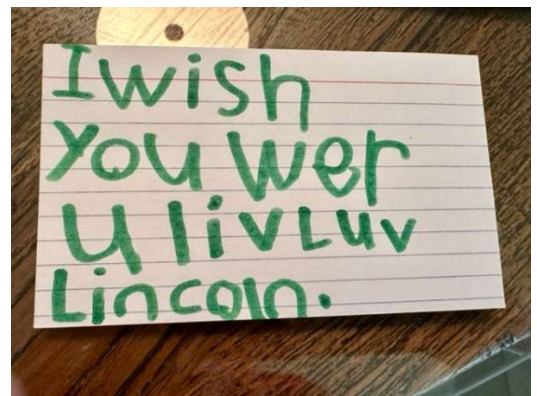 I wish
You wer
U liv Luv
Lincoln.